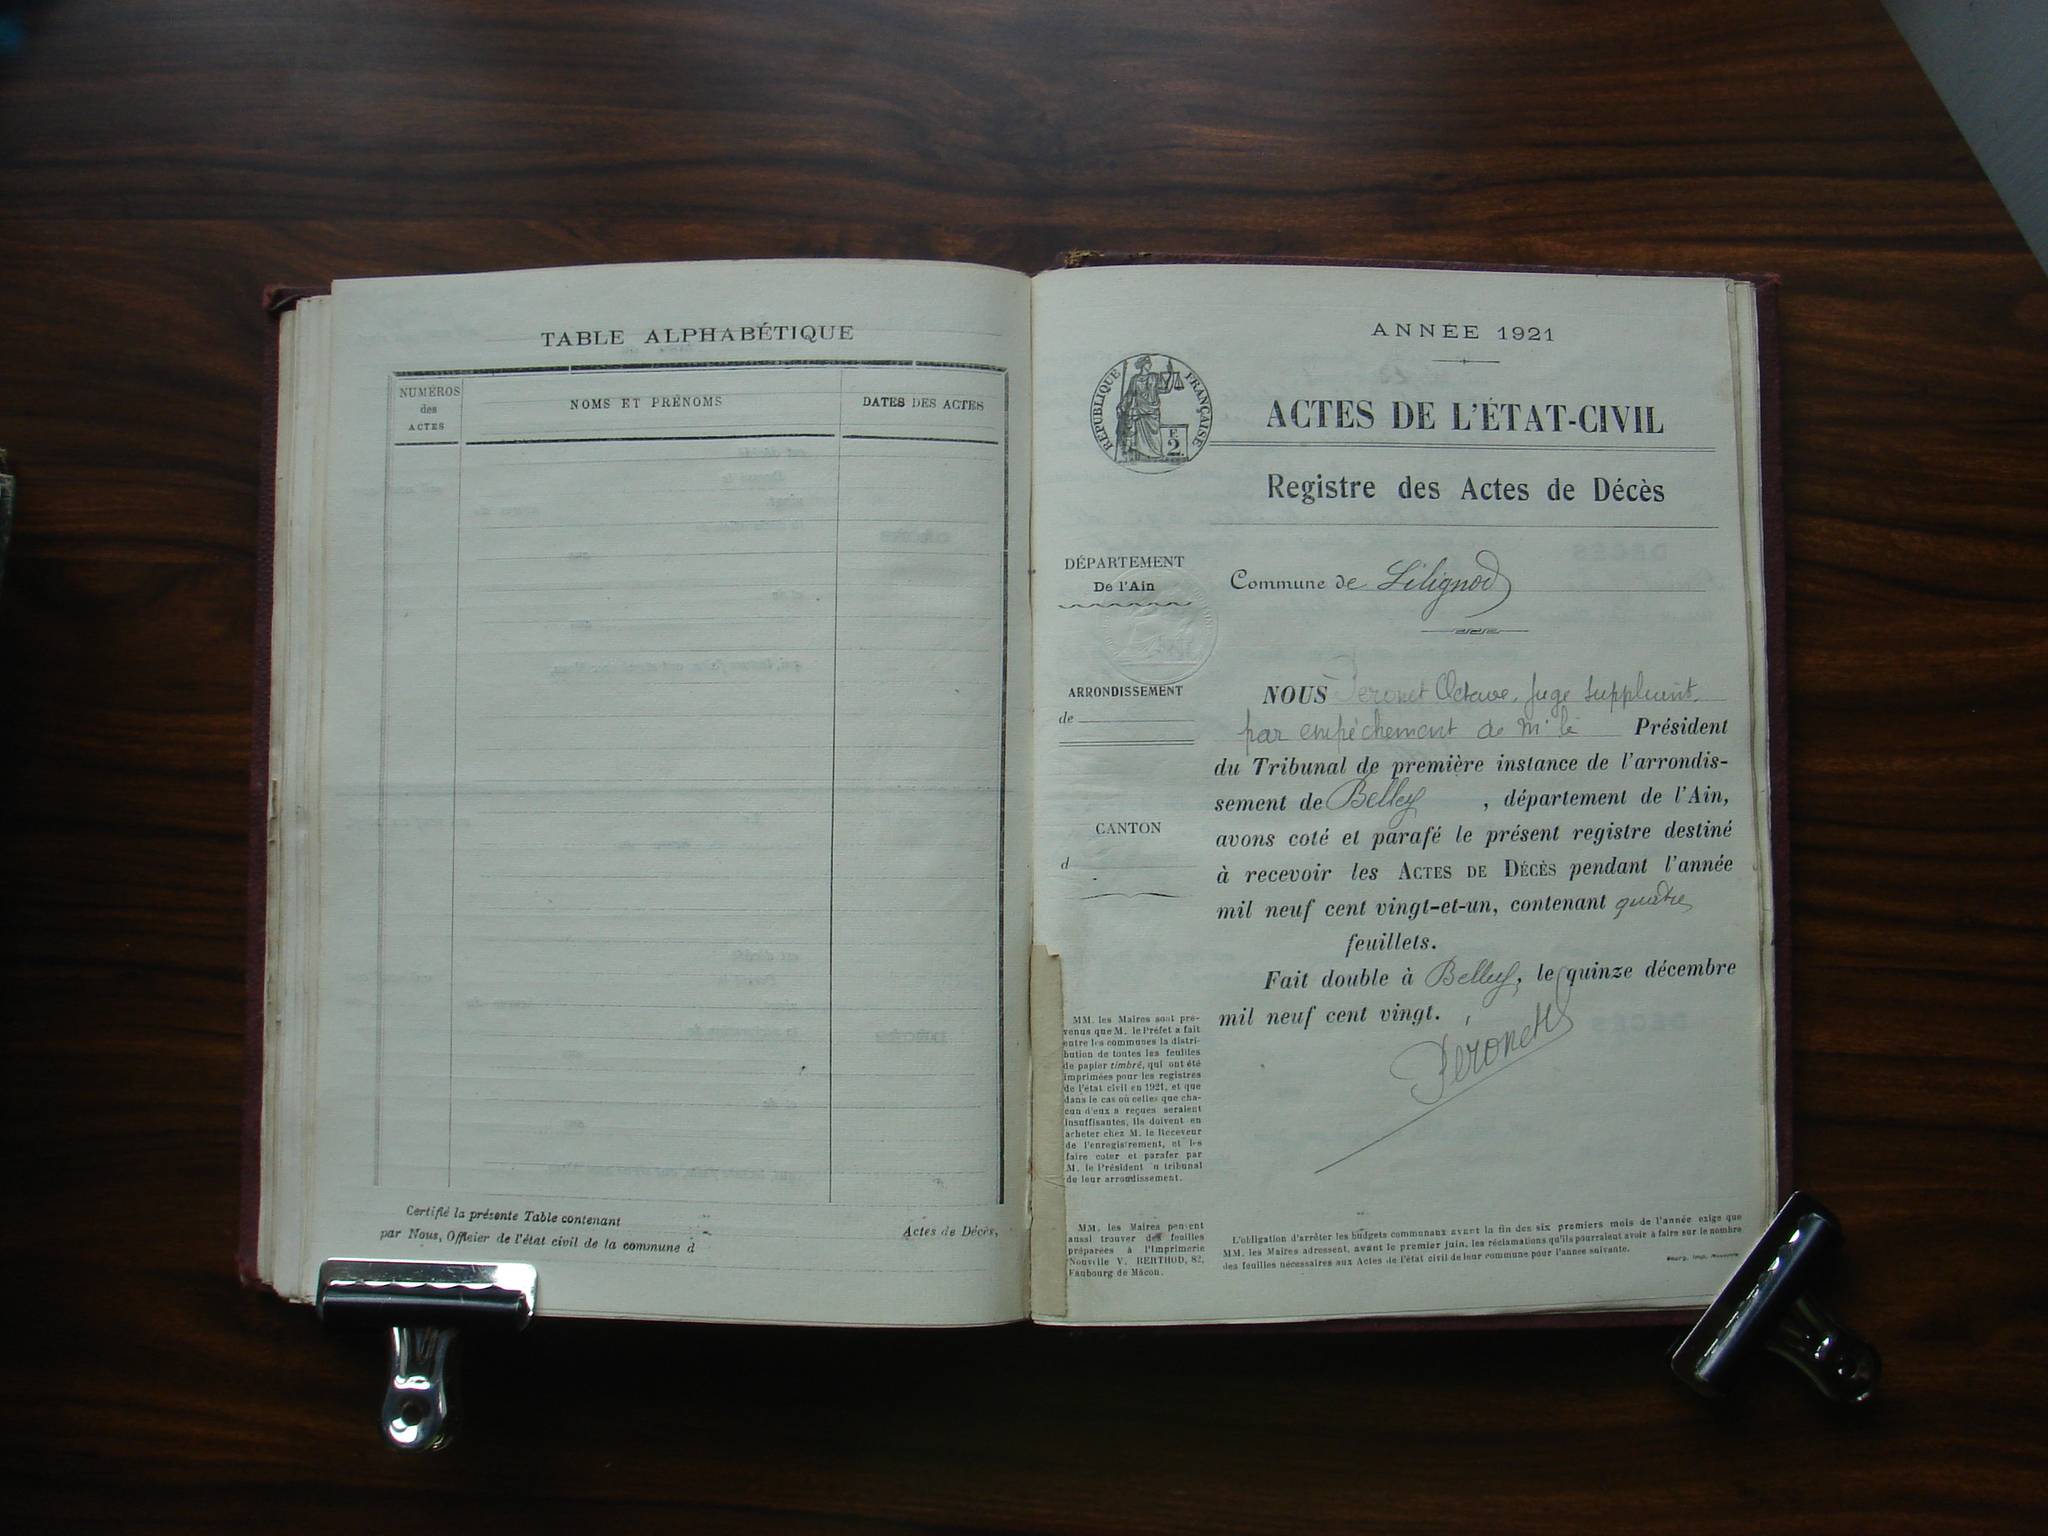 TABLE ALPHABÉTIQUE
NUMÉROS
des
ACTES
NOMS ET PRÉNOMS
DATES DES ACTES
Certifié la présente Table contenant
Actes de Décès,
par Nous, Officier de l'état civil de la commune d
ANNÉE 1921
RÉPUBLIQUE FRANÇAISE
E
2.
ACTES DE L'ÉTAT-CIVIL
Registre des Actes de Décès
DÉPARTEMENT
De l'Ain
Commune de Lilignod
ARRONDISSEMENT
de
CANTON
d
NOUS Péronet Octave, Juge suppléant,
par empêchement de Mr le Président
du Tribunal de première instance de l'arrondis-
sement de Belley , département de l'Ain,
avons coté et parafé le présent registre destiné
à recevoir les ACTES DE DÉCÈS pendant l'année
mil neuf cent vingt-et-un, contenant quatre
feuillets.
Fait double à Belley, le quinze décembre
mil neuf cent vingt.
Péronet
MM. les Maires sont pré-
venus que M. le Préfet a fait
entre les communes la distri-
bution de toutes les feuilles
de papier timbré, qui ont été
imprimées pour les registres
de l'état civil en 1921, et que
dans le cas où celles que cha-
cun d'eux a reçues seraient
insuffisantes, ils doivent en
acheter chez M. le Receveur
de l'enregistrement, et les
faire coter et parafer par
M. le Président du tribunal
de leur arrondissement.
MM. les Maires peuvent
aussi trouver des feuilles
préparées à l'Imprimerie
Nouvelle V. BERTHOD, 82,
Faubourg de Mâcon.
L'obligation d'arrêter les budgets communaux avant la fin des six premiers mois de l'année exige que
MM. les Maires adressent, avant le premier juin, les réclamations qu'ils pourraient avoir à faire sur le nombre
des feuilles nécessaires aux Actes de l'état civil de leur commune pour l'année suivante.
Bourg, Imp. Nouvelle